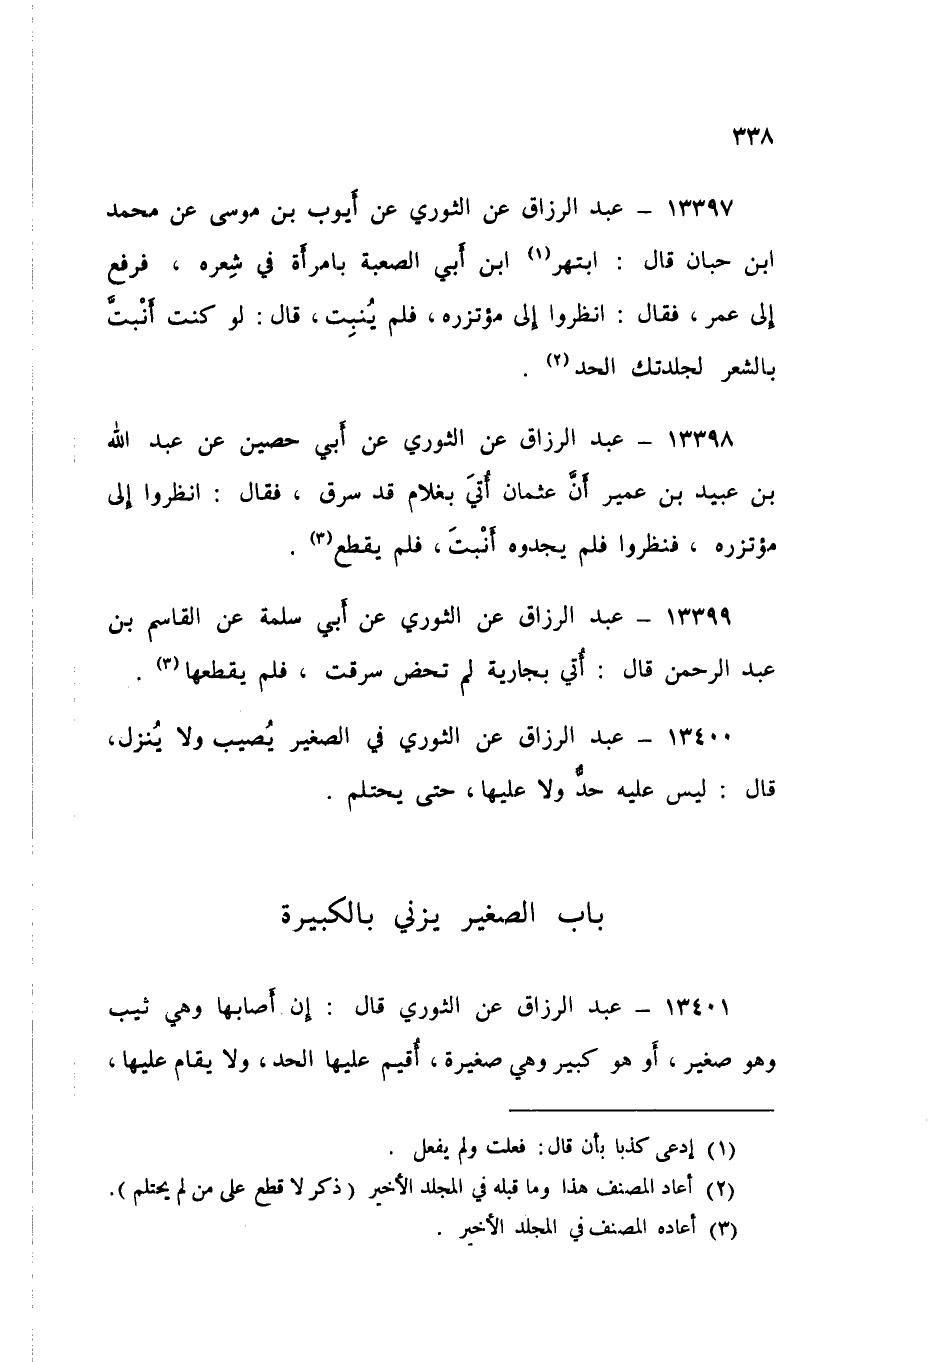 ٣٣٨
١٣٣٩٧ – عبد الرزاق عن الثوري عن أيوب بن موسى عن محمد
ابن حبان قال : ابتهر(١) ابن أبي الصعبة بامرأة في شِعره ، فرفع
إلى عمر ، فقال : انظروا إلى مؤتزره ، فلم يُنبِت ، قال : لو كنت أَنْبتَّ
بالشعر لجلدتك الحد(٢) .
١٣٣٩٨ – عبد الرزاق عن الثوري عن أبي حصين عن عبد الله
بن عبيد بن عمير أَنَّ عثمان أُتيَ بغلام قد سرق ، فقال : انظروا إلى
مؤتزره ، فنظروا فلم يجدوه أَنْبتَ ، فلم يقطع(٣) .
١٣٣٩٩ – عبد الرزاق عن الثوري عن أبي سلمة عن القاسم بن
عبد الرحمن قال : أُتي بجارية لم تحض سرقت ، فلم يقطعها(٣) .
١٣٤٠٠ – عبد الرزاق عن الثوري في الصغير يُصيب ولا يُنزل،
قال : ليس عليه حدٌّ ولا عليها ، حتى يحتلم .
باب الصغير يزني بالكبيرة
١٣٤٠١ – عبد الرزاق عن الثوري قال : إن أصابها وهي ثيب
وهو صغير ، أو هو كبير وهي صغيرة ، أُقيم عليها الحد ، ولا يقام عليها ،
(١) إدعى كذبا بأن قال : فعلت ولم يفعل .
(٢) أعاد المصنف هذا وما قبله في المجلد الأخير ( ذكر لا قطع على من لم يحتلم ).
(٣) أعاده المصنف في المجلد الأخير .